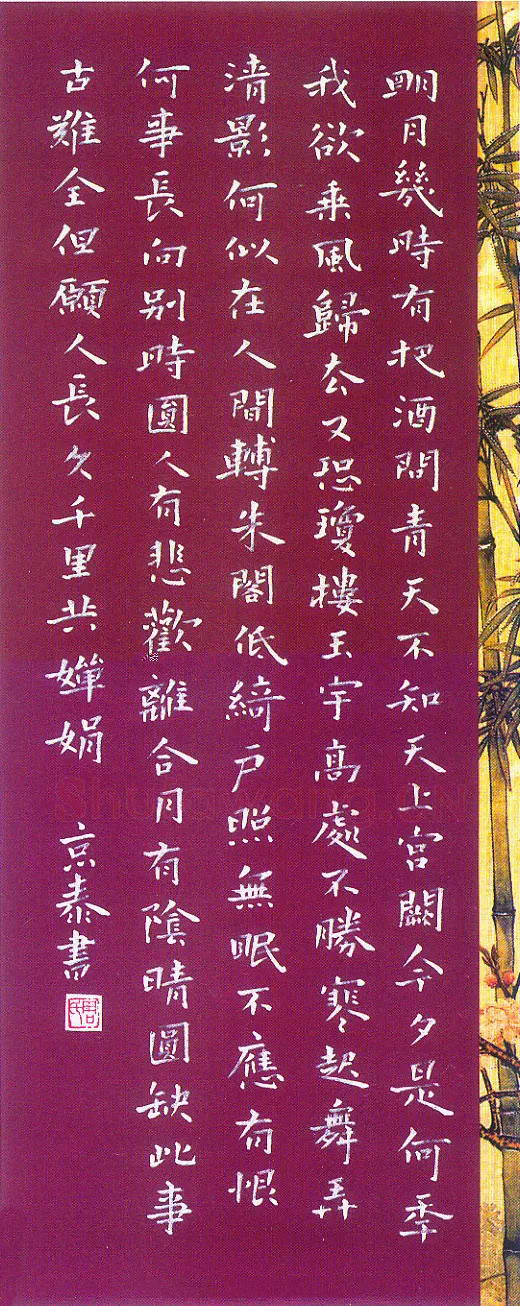 明月幾時有把酒問青天不知天上宮闕今夕是何年
我欲乘風歸去又恐瓊樓玉宇高處不勝寒起舞弄
清影何似在人間轉朱閣低綺戶照無眠不應有恨
何事長向別時圓人有悲歡離合月有陰晴圓缺此事
古難全但願人長久千里共嬋娟
京泰書